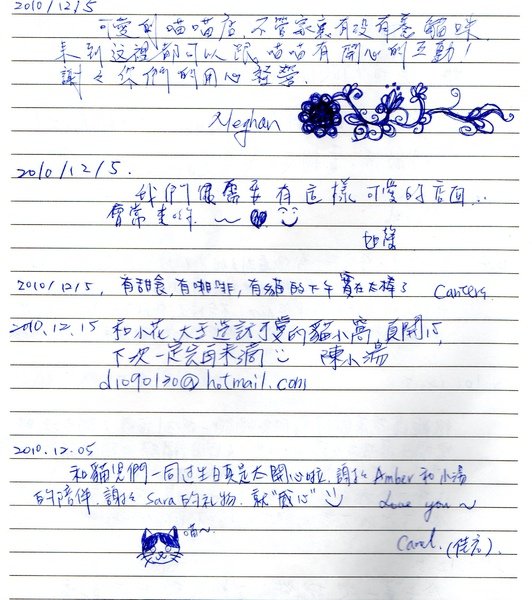 2010/12/5
可愛的喵喵店,不管家裏有沒有養貓咪
來到这裡都可以跟喵喵有開心的互動!
謝々你們的用心經營。
Meghan
2010/12/5.
我們很需要有這樣可愛的店面..
會常來呀~
2010/12/5, 有甜食,有咖啡,有貓的下午實在太棒了
2010.12.15 和小花,大于造訪可愛的貓小窩,真開心,
下次一定會再來滴 陳小湯
d1090130@hotmail.com
2010.12.05
和貓兒們一同过生日真是太開心啦. 謝謝 Amber 和小湯
的陪伴,謝謝 Sara 的礼物. 就"感心" Love you~
喵~
Carol.